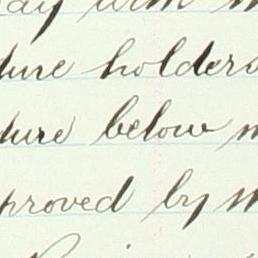 ay with
ture holders
ture below
proved by